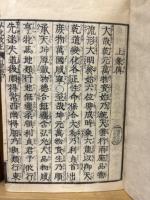 上彖傳
大哉乾元萬物資始乃統天雲行雨施品物
流形大明終始六位時成時乘六龍以御天
乾道變化各正性命保合大和乃利貞首出
庶物萬國咸寧○至哉坤元萬物資生乃順
承天坤厚載物德合无疆含弘光大品物咸
亨牝馬地類行地无疆柔順利貞君子攸行
先迷失道後順得常西南得朋乃與類行東